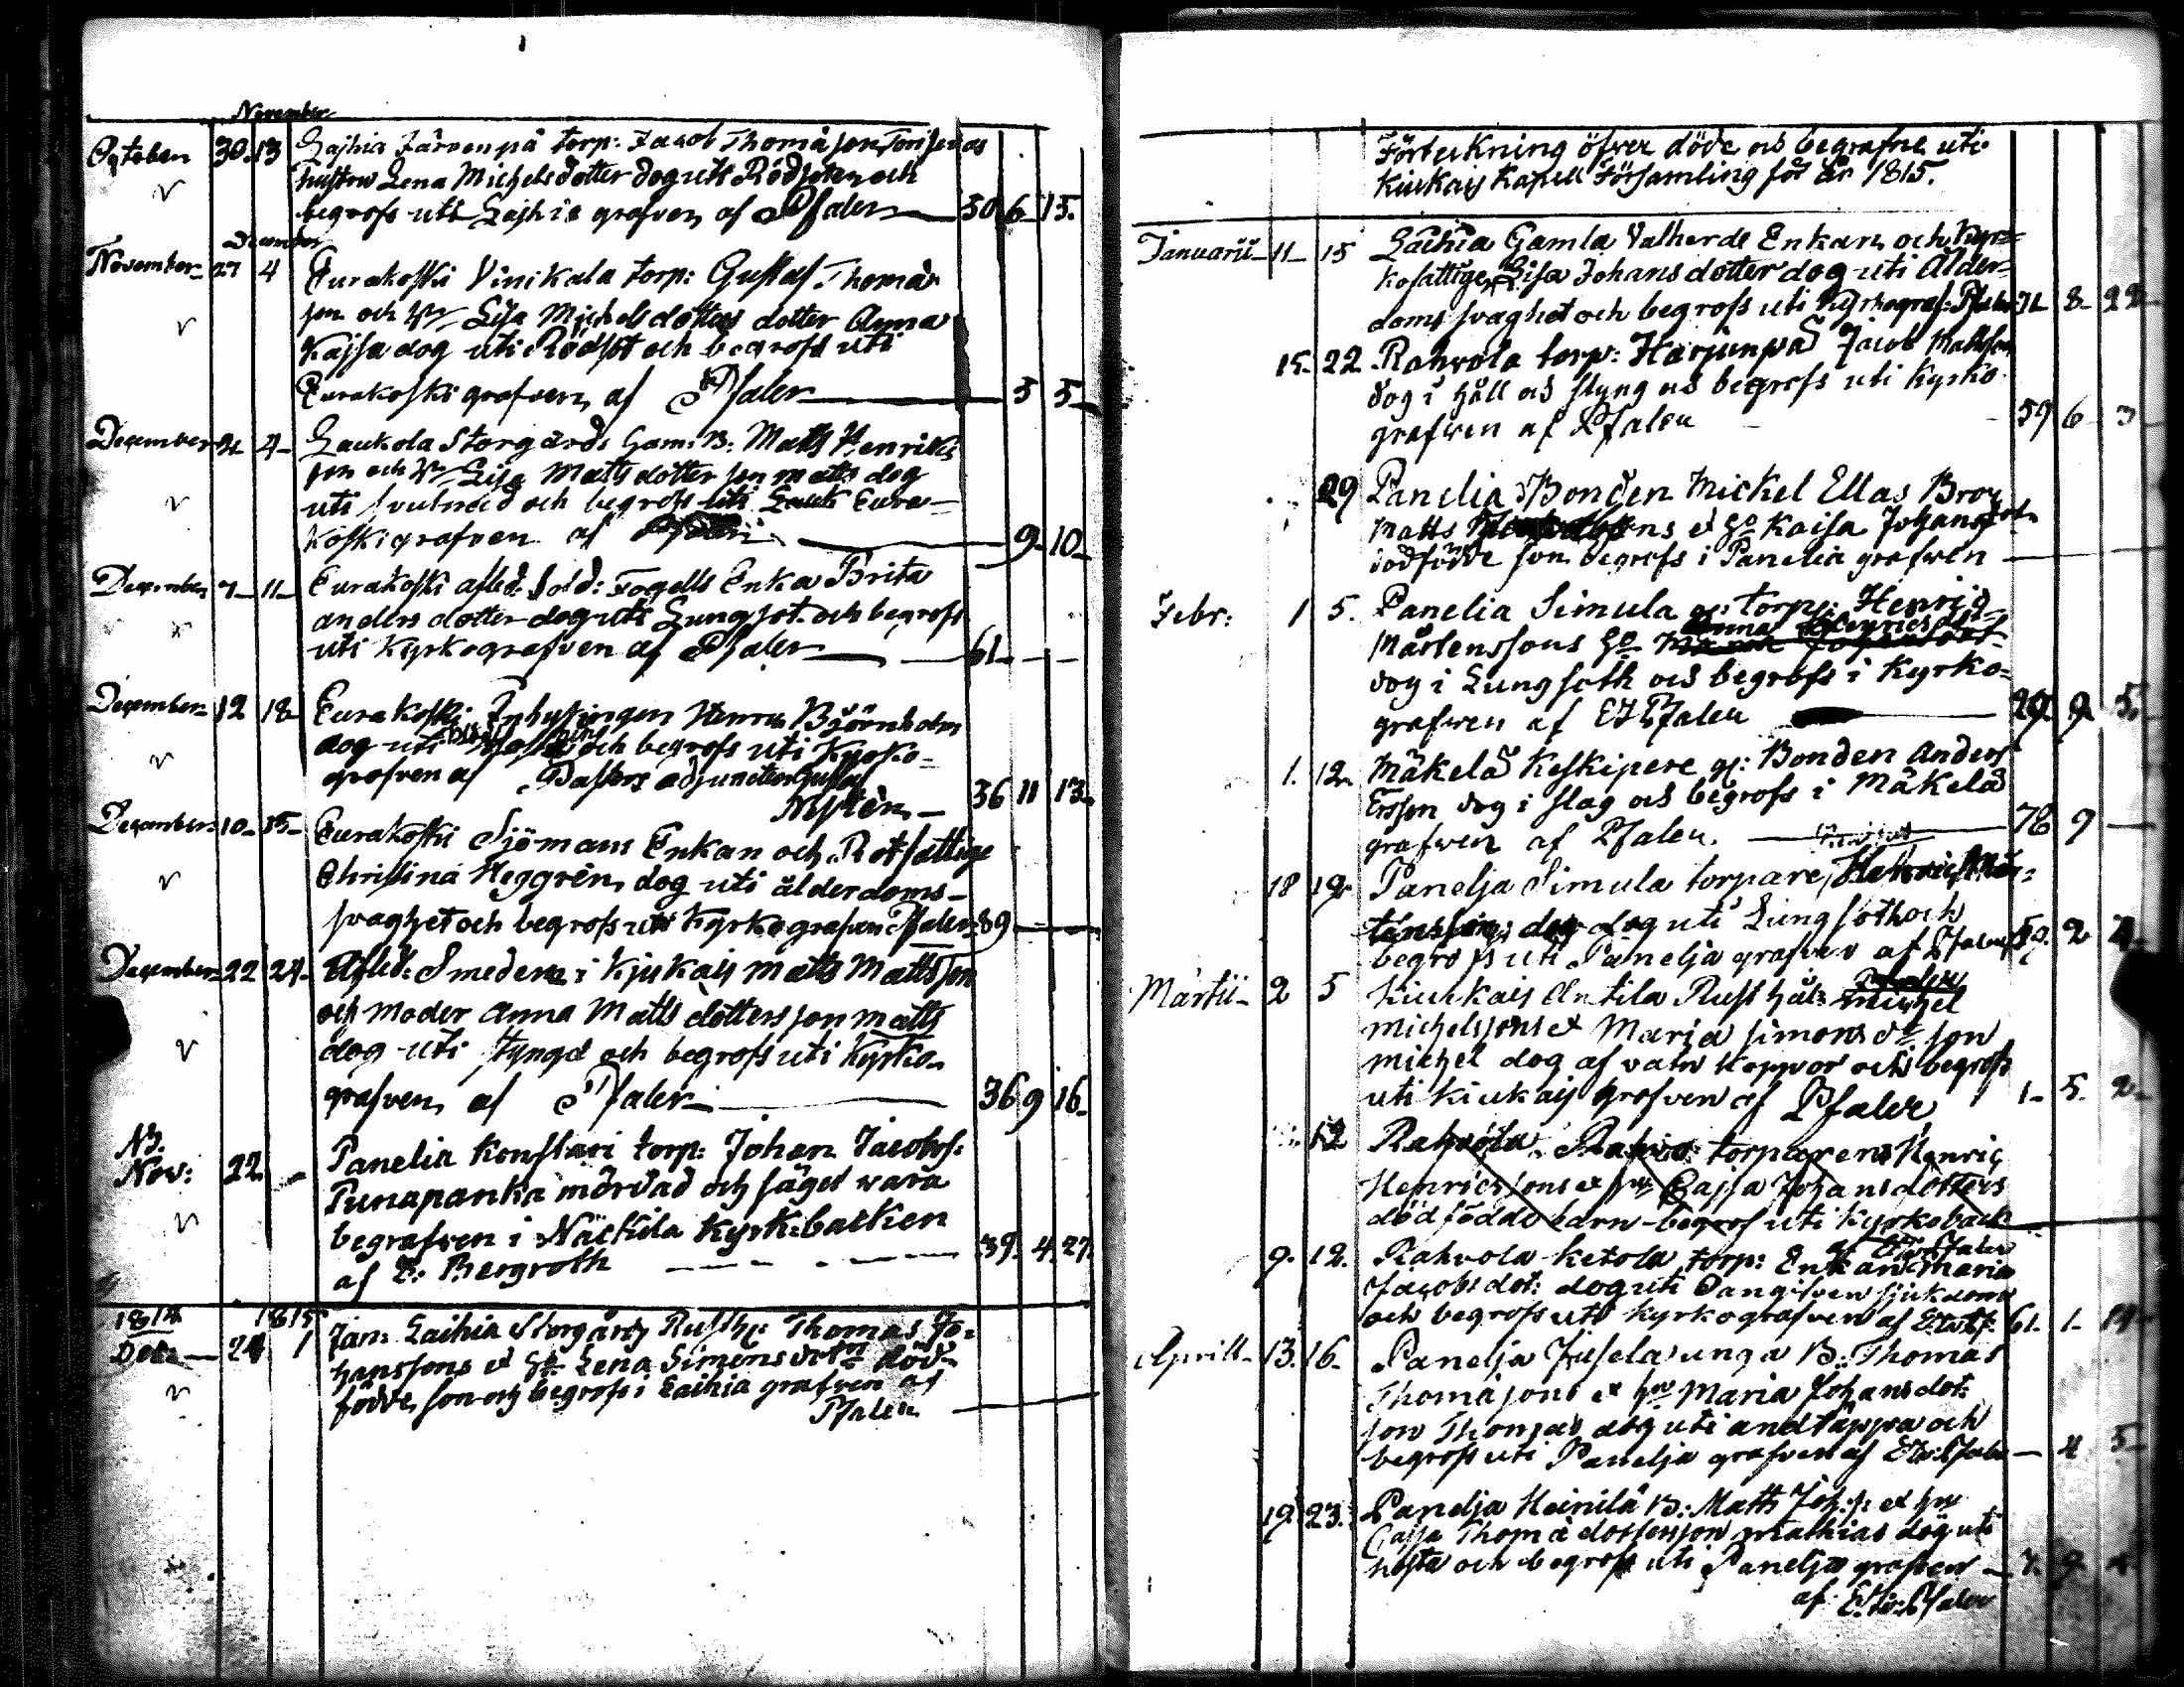 November
October 30. 13 Lajhia Järvenpä torp: Jacob Thomåson
hustru Lena Michelsdotter dog uti Rödsoten och
begrofs uti Lajhia grafven af Pfaler 50 6 15.
December
November 27 4 Eurakoski Vinikala torp: Gustaf Thomæ
son och hu Lisa Michelsdotters dotter Anna
Kajsa dog uti Rödsot och begrofs uti
Eurakoski grafven af Pfaler 3 5
December 4 Laukola Storgårds Gam: B: Matts Henriks
son och hu Lisa Mattsdotter son Matts dog
uti och begrofs uti Eura-
koski grafven af 9 10
December 7 11 Eurakoski afled: Sold: Fogells Enka Brita
anders dotter dog uti Lungsot och begrofs
uti Kyrkografven af Pfaler 61
December 12 18 Eurakoski Inhysingen Henric Björnholm
dog uti och begrofs uti Kyrko-
grafven af Pastors adjuncten Gustaf
Nysten 36 11 13
December 10 15 Eurakoski Sjömans Enkan och Rotfattige
Christina Heggrén dog uti ålderdoms-
svaghet och begrofs uti Kyrkografven Pfaler 89
December 22 24 Afled: Smedens i Kjukais Matts Mattsson
och moder Anna Matts dotters son Matts
dog uti styngd och begrofs uti Kyrko-
grafven af Pfaler 36 9 16
NB.
Nov: 22. Panelia Konstari torp: Johan Jacobs:
Punapanka mördad och säges vara
begrafven i Näckila Kyrk-backen
af E: Bergroth 39. 4. 27.
1814 1815
Dec: 24 1 Jan: Laihia Storgårds Rusth: Thomas Jo-
hanssons et H: Lena Simonsdotrs död-
födde son och begrofs i Laihia grafven af
Pfaler
Förteckning öfver döde och begrafne uti
Kiukais Kapell Församling för år 1815.
Januarii 11 15 Laihia Gamla Valherde Enkan och Kyr-
kofattige Lisa Johansdotter dog uti Ålder-
doms svaghet och begrofs uti Kyrkograf: Pfaler 71 8 22
15. 22. Rahvola torp: Harjunpä Jacob Mattsson
dog i håll och styng och begrofs uti Kyrko
grafven af Pfaler 59 6 3
29 Panelia Bonden Mickel Ellas Bror
Matts et H: Kaisa Johansdotr
dödfödde son begrofs i Panelia grafven
Febr: 1 5. Panelia Simula torp: Henric
Mårtenssons H: Anna Henrics
dog i Lungsoth och begrofs i Kyrko-
grafven af Pfaler 29. 9. 5.
1. 12. Mäkelä Keskipere Bonden Anders
Ersson dog i slag och begrofs i Mäkelä
grafven af Pfaler. 78 9
18 19 Panelja Simula torpare Henric Mår-
tensson dog uti Lungsoth och
begrofs uti Panelja grafven af Pfaler 2
Martii 2 5 Kiukais Antila Rusthål: Michel
Michelssons et Maria Simonsdr son
Michel dog af vatu Koppor och begrofs
uti Kiukais grafven af Pfaler 1. 5. 2
12 Rahvola torparens Henric
Henricssons et hu Cajsa Johansdotters
dödfödde barn begrof uti Kyrkoback
af Pfaler
9. 12. Rahvola Ketola torp: Enkan Maria
Jacobsdot: dog uti sjukdom
och begrofs uti Kyrkografven af 61. 1.
Aprill 13. 16. Panelja Jusela unga B: Thomas
Thomåsons et hu Maria Johansdot:
son Thomas dog uti andtäppa och
begrofs uti Panelja grafven af Pfaler 5
19. 23. Panelja Heinilä B: Matts Joh: s: et hu
Cajsa Thomædotters son Mathias dog uti
hosta och begrofs uti Panelja grafven 7. 9
af Pfaler